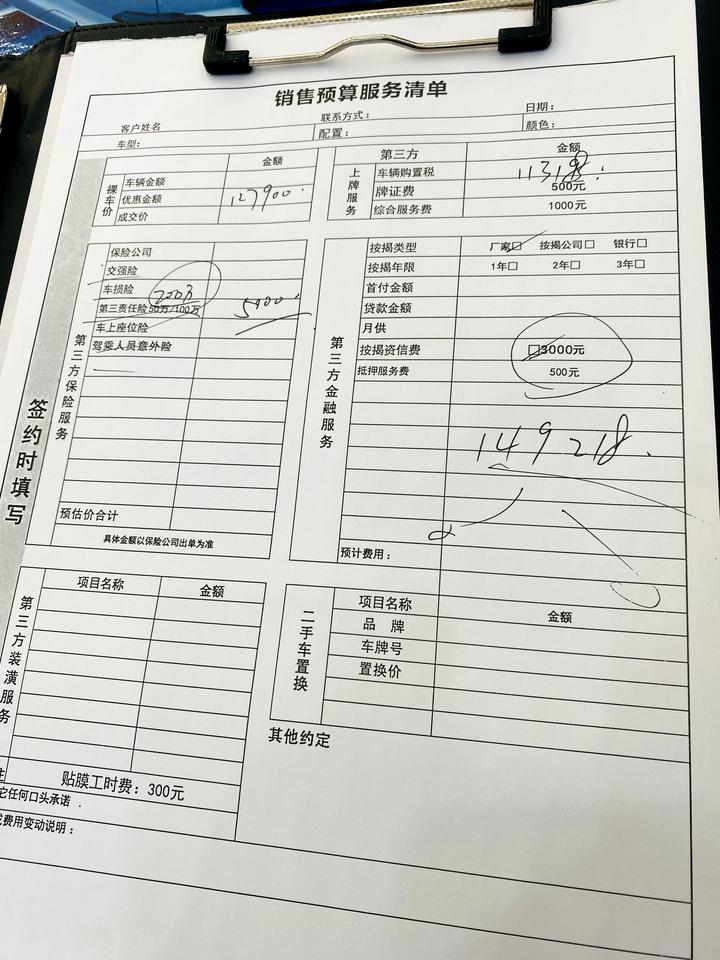 销售预算服务清单
客户姓名
联系方式：
日期：
车型：
配置：
颜色：
签约时填写
裸车价
金额
车辆金额
优惠金额
127900.
成交价
上牌服务
第三方
金额
车辆购置税
11318.
牌证费
500元
综合服务费
1000元
第三方保险服务
保险公司
交强险
车损险
200万
第三责任险50万/100万
5900.
车上座位险
驾乘人员意外险
预估价合计
具体金额以保险公司出单为准
第三方金融服务
按揭类型
厂家□ 按揭公司□ 银行□
按揭年限
1年□ 2年□ 3年□
首付金额
贷款金额
月供
按揭资信费
□3000元
抵押服务费
500元
149218.
预计费用：
第三方装潢服务
项目名称
金额
贴膜工时费：300元
它任何口头承诺
费用变动说明：
二手车置换
项目名称
金额
品 牌
车牌号
置换价
其他约定